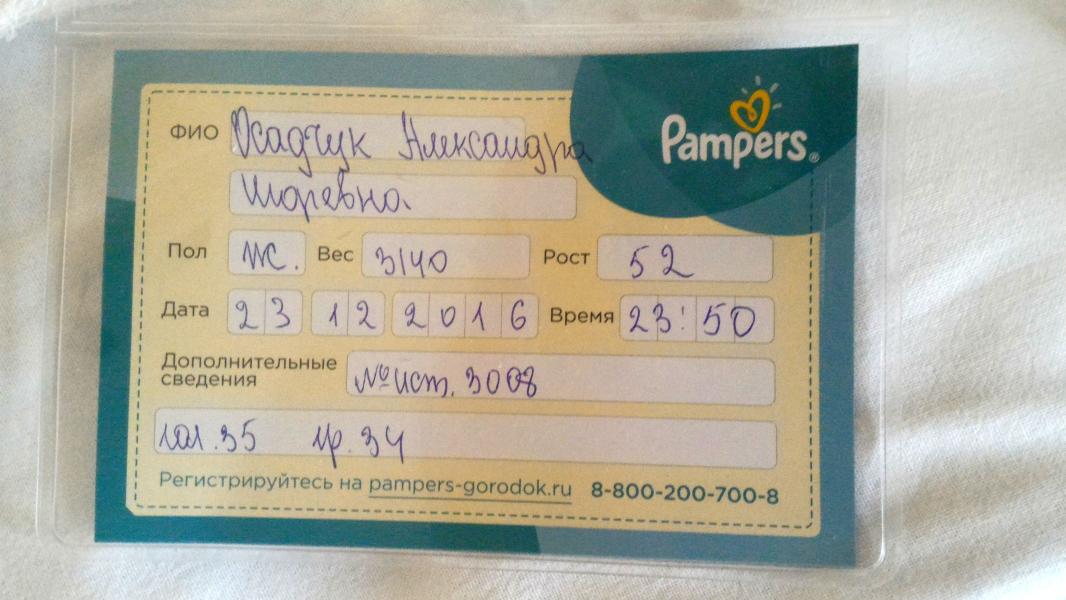 Pampers®
ФИО Осадчук Александра
Игоревна.
Пол ж. Вес 3140 Рост 52
Дата 23 12 2016 Время 23:50
Дополнительные
сведения №ист. 3008
гол. 35 гр. 34
Регистрируйтесь на pampers-gorodok.ru 8-800-200-700-8